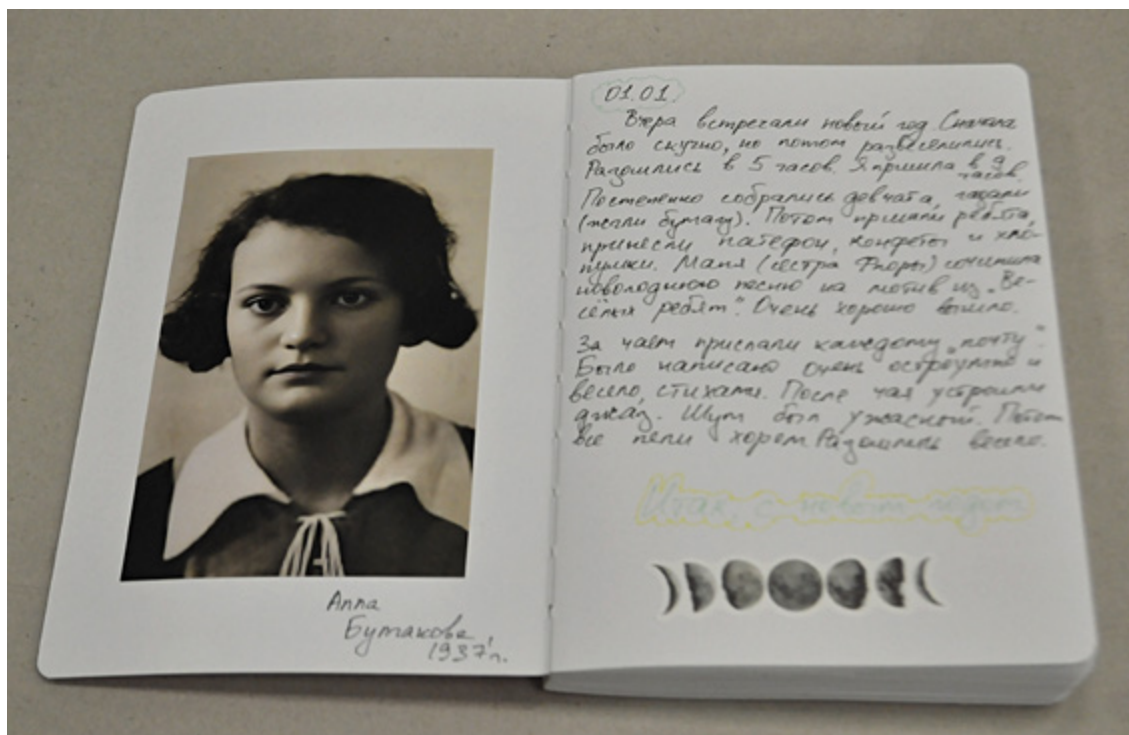 Анна
Бутакова
1937 г.
01.01.
Вчера встречали новый год. Сначала
было скучно, но потом развеселились.
Разошлись в 5 часов. Я пришла в 9
часов.
Постепенно собрались девчата, гадали
(жгли бумагу). Потом пришли ребята,
принесли патефон, конфеты и хло-
пушки. Маня (сестра Флоры) сочинила
новогоднюю песню на мотив из „Ве-
сёлых ребят“. Очень хорошо вышло.
За чаем прислали каждому „почту“.
Было написано очень остроумно и
весело, стихами. После чая устроили
джаз. Шум был ужасный. Потом
все пели хором. Разошлись весело.
Итак, с новым годом